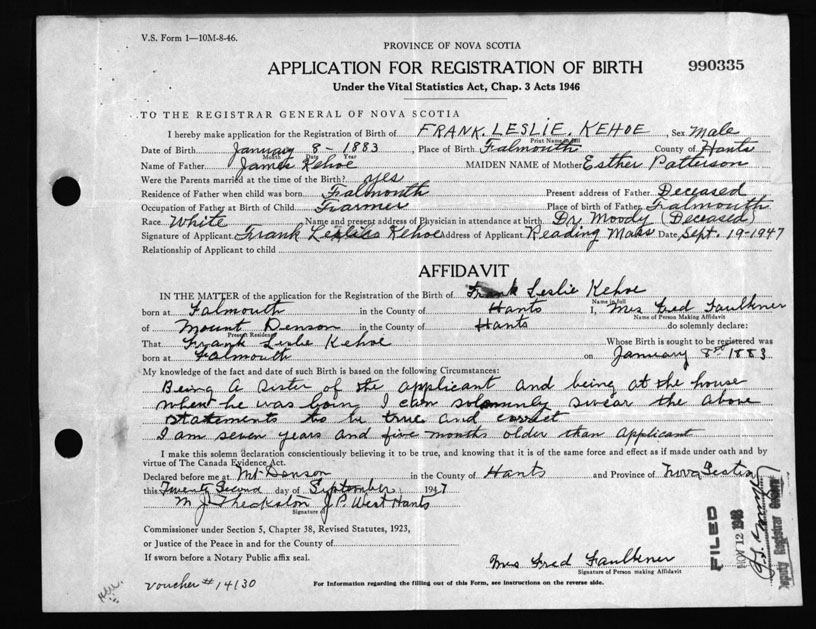 V.S. Form 1—10M-8-46.
PROVINCE OF NOVA SCOTIA
APPLICATION FOR REGISTRATION OF BIRTH 990335
Under the Vital Statistics Act, Chap. 3 Acts 1946
TO THE REGISTRAR GENERAL OF NOVA SCOTIA
I hereby make application for the Registration of Birth of FRANK. LESLIE. KEHOE, Sex Male
Print Name in full
Date of Birth January 8 - 1883, Place of Birth Falmouth County of Hants
Month Date Year
Name of Father James Kehoe MAIDEN NAME of Mother Esther Patterson
Were the Parents married at the time of the Birth? yes
Residence of Father when child was born Falmouth Present address of Father Deceased
Occupation of Father at Birth of Child Farmer Place of birth of Father Falmouth
Race White Name and present address of Physician in attendance at birth Dr Moody (Deceased)
Signature of Applicant Frank Leslie Kehoe Address of Applicant Reading Mass Date Sept. 19-1947
Relationship of Applicant to child
AFFIDAVIT
IN THE MATTER of the application for the Registration of the Birth of Frank Leslie Kehoe
Name in full
born at Falmouth in the County of Hants I, Mrs Fred Faulkner
Name of Person Making Affidavit
of Mount Denson in the County of Hants do solemnly declare:
Present Residence
That Frank Leslie Kehoe Whose Birth is sought to be registered was
born at Falmouth on January 8th 1883
My knowledge of the fact and date of such Birth is based on the following Circumstances:
Being a sister of the applicant and being at the house
when he was born I can solemnly swear the above
statements to be true and correct
I am seven years and five months older than applicant
I make this solemn declaration conscientiously believing it to be true, and knowing that it is of the same force and effect as if made under oath and by
virtue of The Canada Evidence Act.
Declared before me at Mt Denson in the County of Hants and Province of Nova Scotia
this Twenty Second day of September 1947
M J Theckston J.P. West Hants
Signature
Commissioner under Section 5, Chapter 38, Revised Statutes, 1923,
or Justice of the Peace in and for the County of
If sworn before a Notary Public affix seal.
Mrs Fred Faulkner
Signature of Person making Affidavit
FILED
NOV 12 1948
Deputy Registrar General
Voucher # 14130
For Information regarding the filling out of this Form, see instructions on the reverse side.